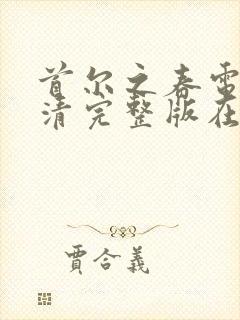 首尔之春电
清完整版在
贾合義